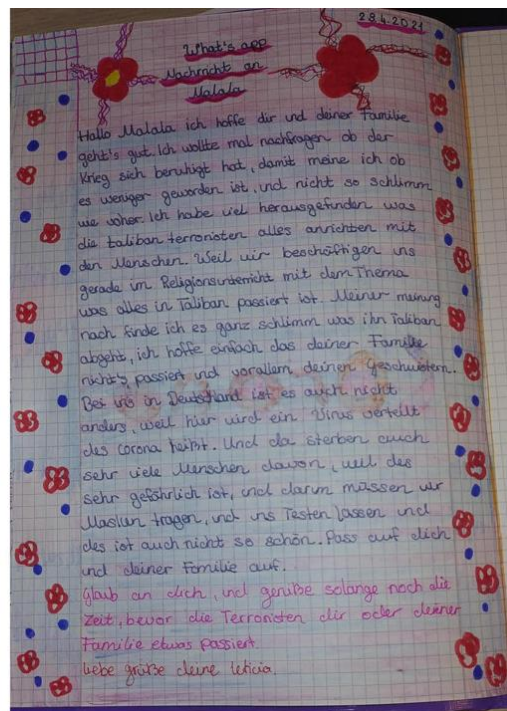 28.4.2021
What's app
Nachricht an
Malala
Hallo Malala ich hoffe dir und deiner Familie
geht's gut. Ich wollte mal nachfragen ob der
Krieg sich beruhigt hat, damit meine ich ob
es weniger geworden ist, und nicht so schlimm
wie voher. Ich habe viel herausgefinden was
die taliban terroristen alles anrichten mit
den Menschen. Weil wir beschäftigen uns
gerade im Religionsunterricht mit dem Thema
was alles in Taliban passiert ist. Meiner meinung
nach finde ich es ganz schlimm was ihn Taliban
abgeht, ich hoffe einfach das deiner Familie
nicht's passiert und vorallem deinen Geschwistern.
Bei uns in Deutschland ist es auch nicht
anders, weil hier wird ein Virus verteilt
des Corona heißt. Und da sterben auch
sehr viele Menschen davon, weil des
sehr gefährlich ist, und darum müssen wir
Masken tragen, und uns Testen lassen und
des ist auch nicht so schön. Pass auf dich
und deiner Familie auf.
Glaub an dich, und genieße solange noch die
Zeit, bevor die Terroristen dir oder deiner
Familie etwas passiert.
liebe grüße deine leticia.